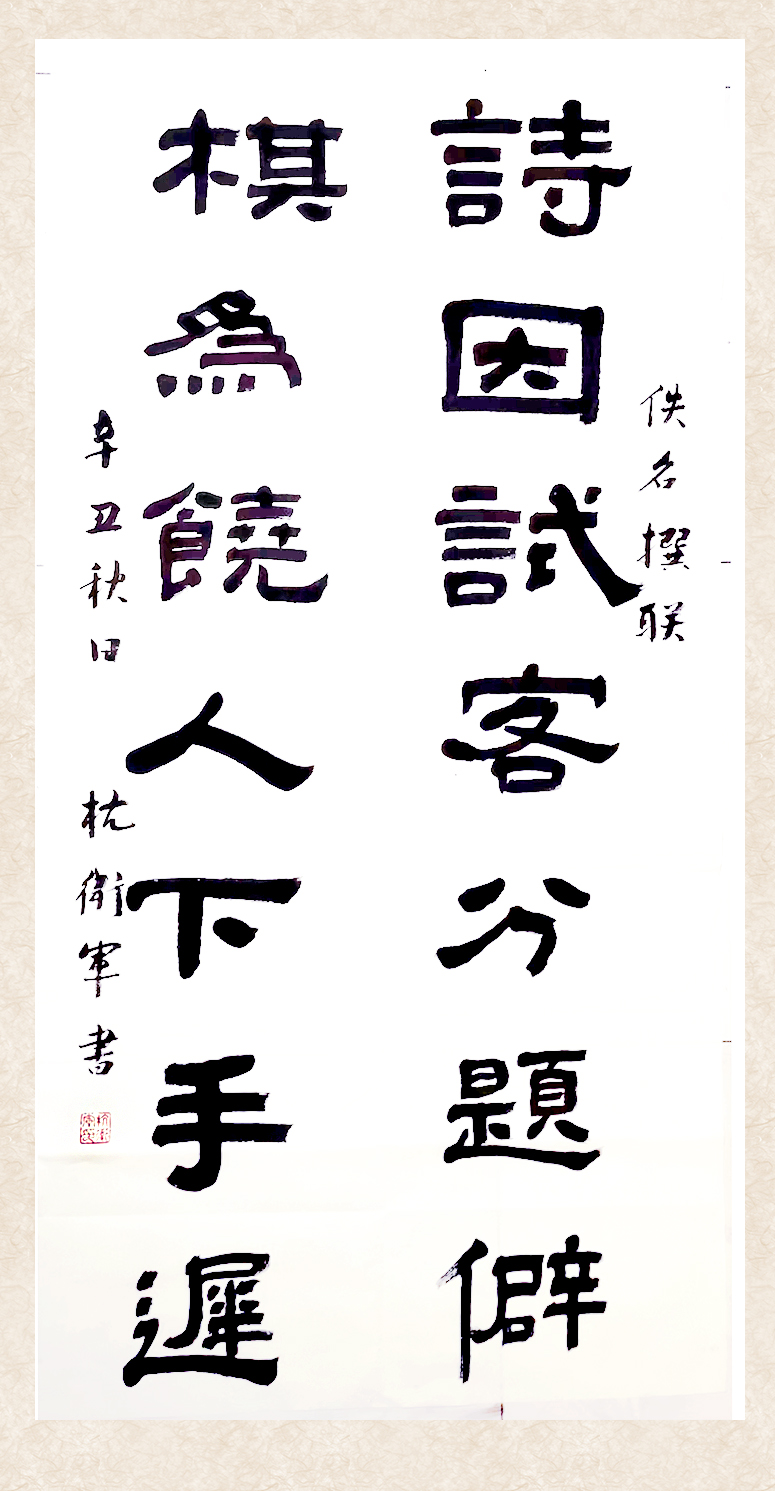 佚名撰联
詩因試客分題僻
棋為饒人下手遲
辛丑秋日 杭衛軍書